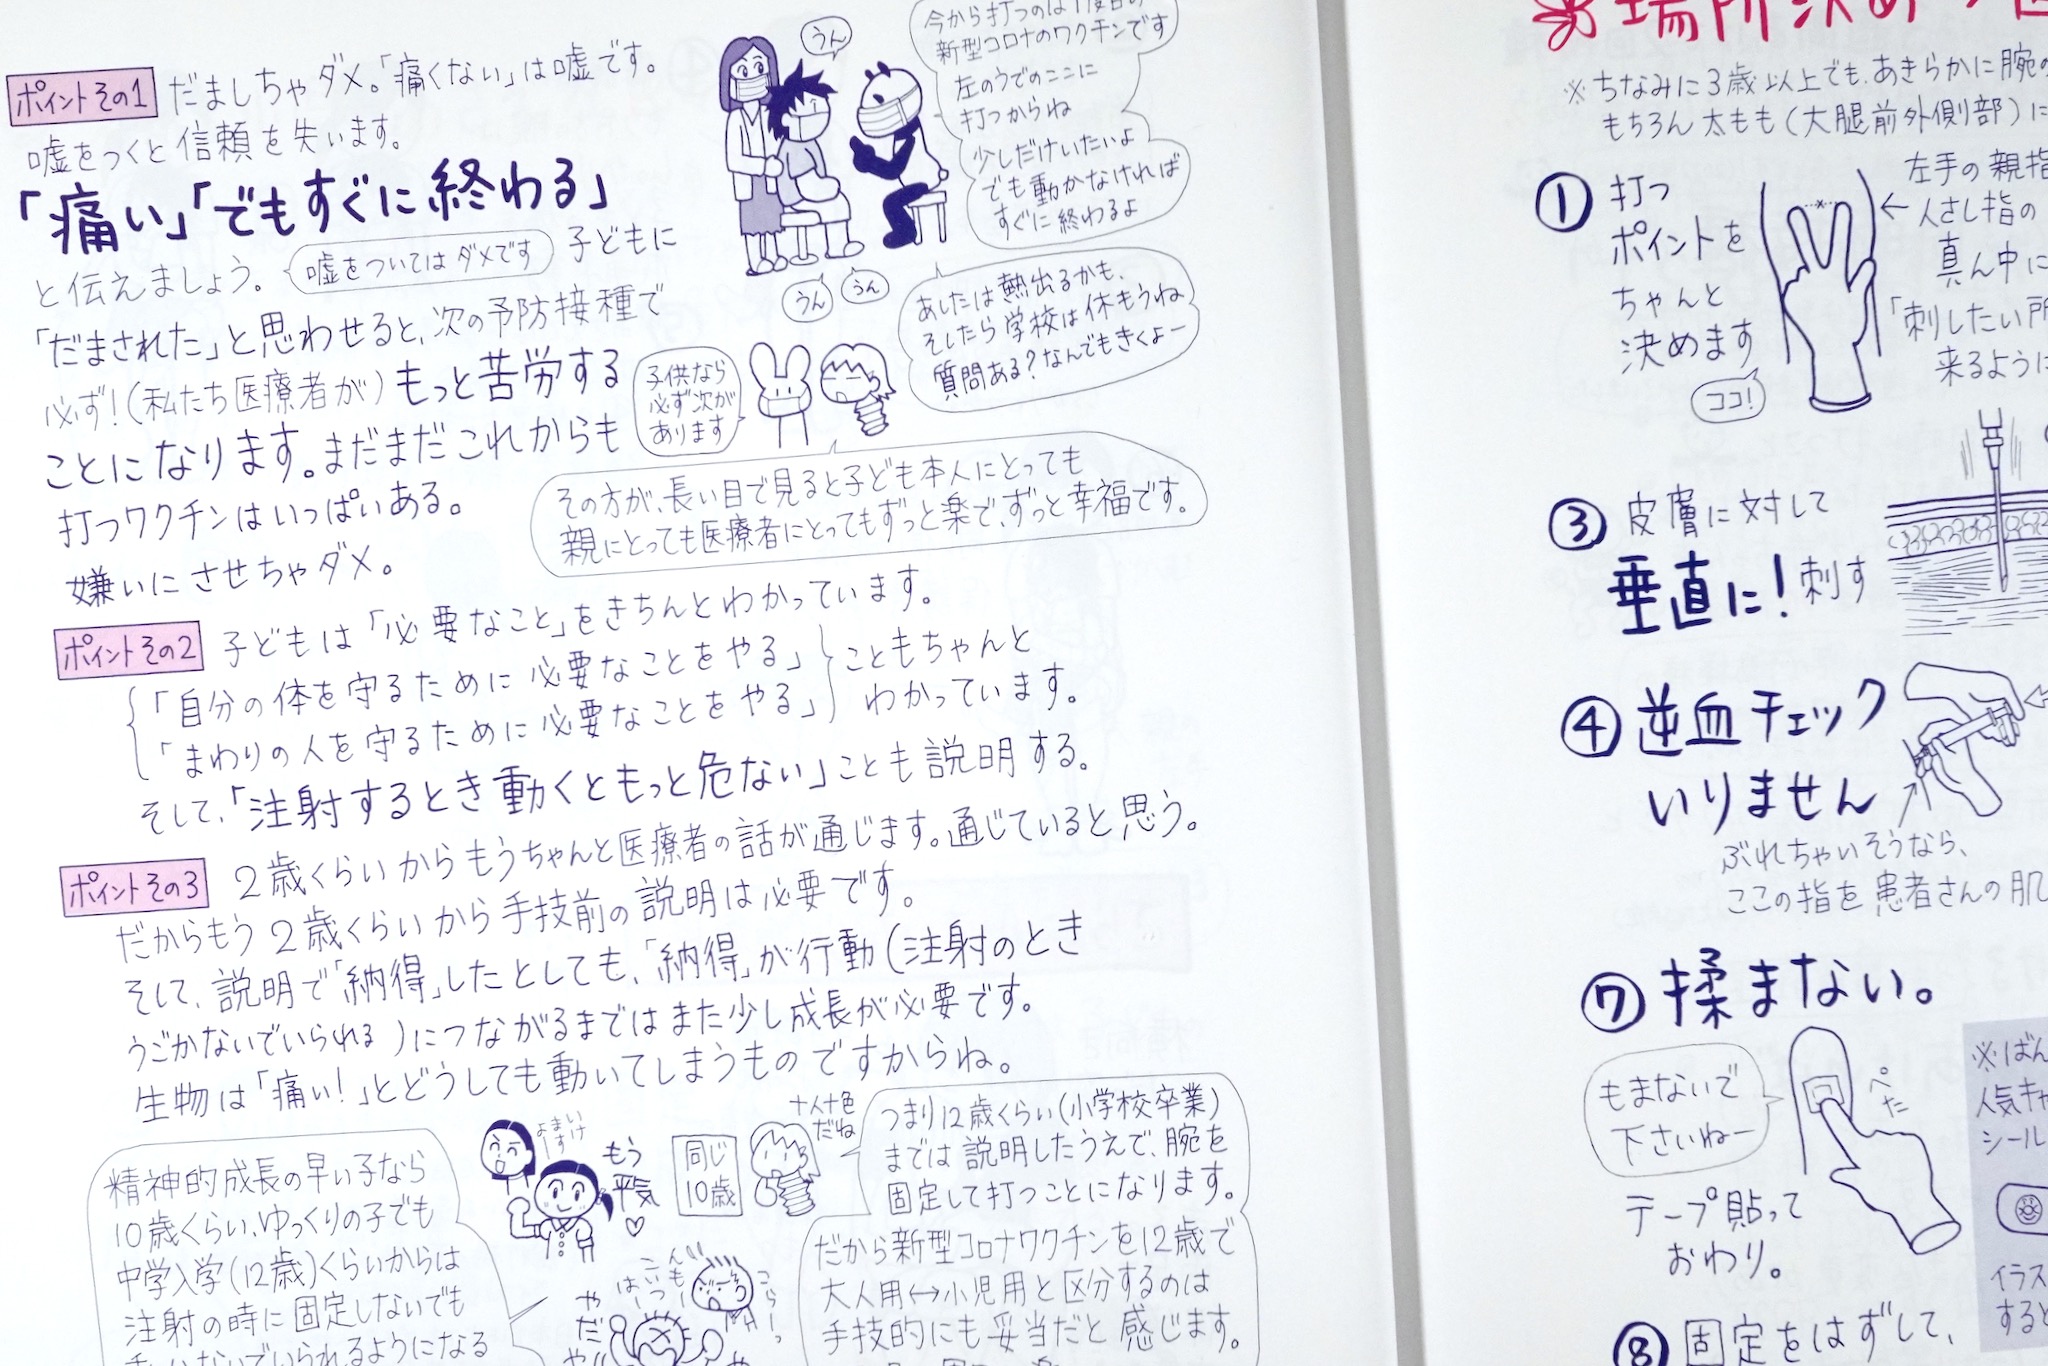 ポイントその1 だましちゃダメ。「痛くない」は嘘です。
嘘をつくと信頼を失います。
「痛い」「でもすぐに終わる」
と伝えましょう。
嘘をついてはダメです
子どもに
「だまされた」と思わせると、次の予防接種で
必ず!(私たち医療者が)もっと苦労する
ことになります。まだまだこれからも
打つワクチンはいっぱいある。
嫌いにさせちゃダメ。
うん
今から打つのは1度目の
新型コロナのワクチンです
左のうでのここに
打つからね
少しだけいたいよ
でも動かなければ
すぐに終わるよ
うん
うん
あしたは熱出るかも、
そしたら学校は休もうね
質問ある?なんでもきくよー
子供なら
必ず次が
あります
その方が、長い目で見ると子ども本人にとっても
親にとっても医療者にとってもずっと楽で、ずっと幸福です。
ポイントその2 子どもは「必要なこと」をきちんとわかっています。
「自分の体を守るために必要なことをやる」
「まわりの人を守るために必要なことをやる」
こともちゃんと
わかっています。
そして、「注射するとき動くともっと危ない」ことも説明する。
ポイントその3 2歳くらいからもうちゃんと医療者の話が通じます。通じていると思う。
だからもう2歳くらいから手技前の説明は必要です。
そして、説明で「納得」したとしても、「納得」が行動(注射のとき
うごかないでいられる)につながるまではまた少し成長が必要です。
生物は「痛い!」とどうしても動いてしまうものですからね。
精神的成長の早い子なら
10歳くらい、ゆっくりの子でも
中学入学(12歳)くらいからは
注射の時に固定しないでも
ないでいられるようになる
もう
平気
同じ
10歳
十人十色
だね
こらーっ
やだ
つまり12歳くらい(小学校卒業)
までは説明したうえで、腕を
固定して打つことになります。
だから新型コロナワクチンを12歳で
大人用↔小児用と区分するのは
手技的にも妥当だと感じます。
場所決め
※ちなみに3歳以上でも、あきらかに腕の
もちろん太もも(大腿前外側部)に
① 打つ
ポイントを
ちゃんと
決めます
ココ!
左手の親指
人さし指の
真ん中に
「刺したい所
来るように
③ 皮膚に対して
垂直に!刺す
④ 逆血チェック
いりません
ぶれちゃいそうなら、
ここの指を患者さんの肌
⑦ 揉まない。
もまないで
下さいねー
ぺた
テープ貼って
おわり。
※ばん
人気キャ
シール
イラス
すると
⑧ 固定をはずして、